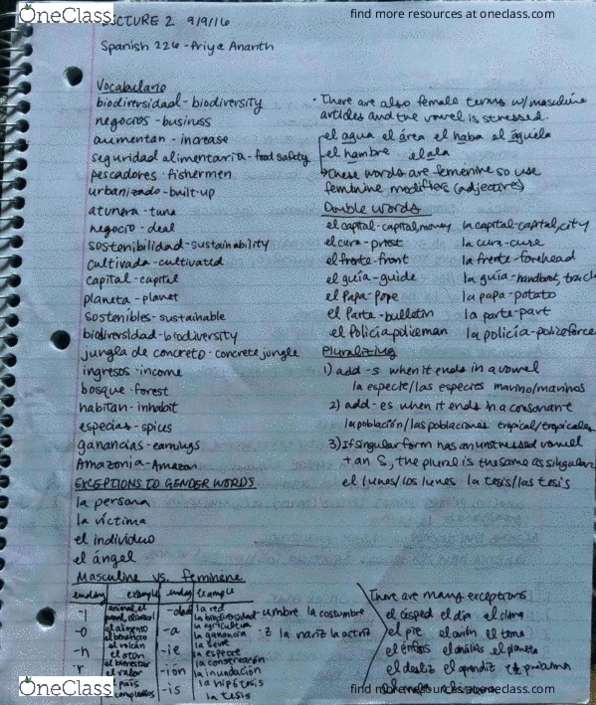 OneClass
find more resources at oneclass.com
LECTURE 2 9/9/16
Spanish 226 - Priya Ananth
Vocabulario
biodiversidad - biodiversity
negocios - business
aumentan - increase
seguridad alimentaria - food safety
pescadores - fishermen
urbanizado - built-up
atunera - tuna
negocio - deal
sostenibilidad - sustainability
cultivada - cultivated
capital - capital
planeta - planet
sostenibles - sustainable
biodiversidad - biodiversity
jungla de concreto - concrete jungle
ingresos - income
bosque - forest
habitan - inhabit
especias - spices
ganancias - earnings
Amazonia - Amazon
EXCEPTIONS TO GENDER WORDS
la persona
la víctima
el individuo
el ángel
· There are also female terms w/ masculine
articles and the vowel is stressed.
el agua el área el haba el águila
el hambre el ala
These words are femenine so use
feminine modifiers (adjectives)
Double Words
el capital - capital, money la capital - capital, city
el cura - priest la cura - cure
el frente - front la frente - forehead
el guía - guide la guía - handbook, track
el Papa - Pope la papa - potato
el Parte - bulletin la parte - part
el Policía policeman la policía - police force
Pluralizing
1) add -s when it ends in a vowel
la especie/las especies marino/marinos
2) add -es when it ends in a consonant
la población/las poblaciones tropical/tropicales
3) If singular form has an unstressed vowel
+ an S, the plural is the same as singular
el lunes/los lunes la tesis/las tesis
Masculine vs. feminene
ending example ending example
-l animal, el
-o el alimento
el beneficio
-n el volcán
el atún
-r el bienestar
el valor
-s país
-dad la red
la biodiversidad
-a la agricultura
la ganancia
-ie la serie
la especie
-ión la conservación
la inundación
-is la hipótesis
la tesis
-umbre la costumbre
-z la nariz la actriz
There are many exceptions
el césped el día el clima
el pie el avión el tema
el énfasis el análisis el planeta
el desliz el aprendiz el problema
OneClass
find more resources at oneclass.com